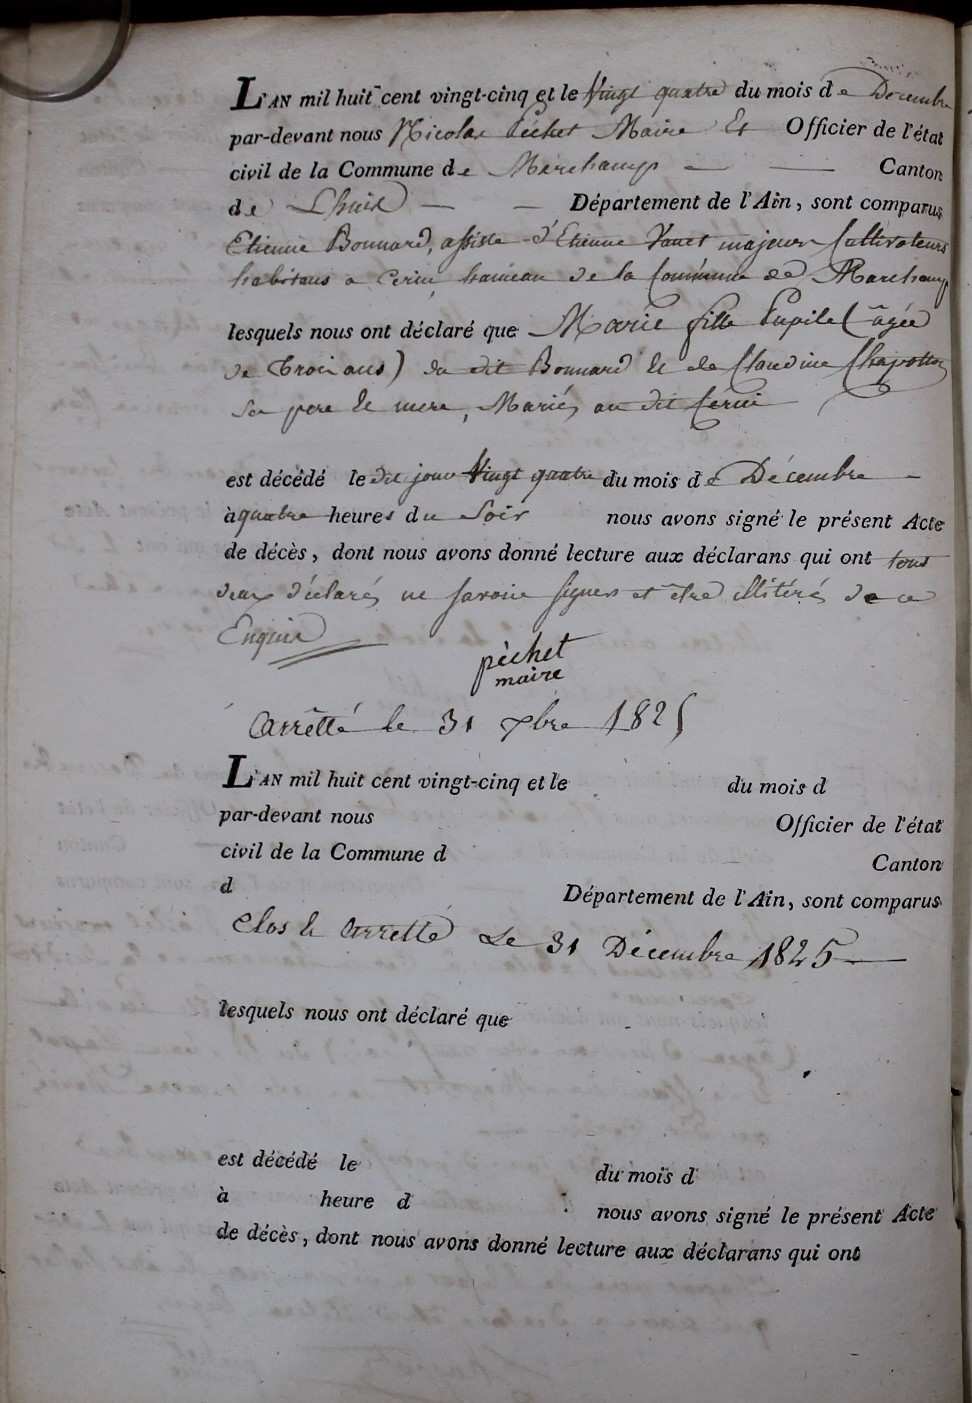 L'AN mil huit cent vingt-cinq et le Vingt quatre du mois de Decembre
par-devant nous Nicolas péchet Maire Et Officier de l'état
civil de la Commune de Marchamp Canton
de Lhuis Département de l'Ain, sont comparus
Etienne Bonnard, assisté d'Etienne majeurs Cultivateurs
habitans a Cerin hameau de la Commune de Marchamp
lesquels nous ont déclaré que Marie fille Pupile (âgée
de Trois ans) du dit Bonnard & de Claudine Chapottoz
Ses pere & mere, Mariés au dit Cerin
est décédé le dit jour Vingt quatre du mois de Décembre
à quatre heures du Soir nous avons signé le présent Acte
de décès, dont nous avons donné lecture aux déclarans qui ont tous
deux déclarés ne savoir signer et être illitérés de ce
Enquis
péchet
maire
Arrêtté le 31 xbre 1825
L'AN mil huit cent vingt-cinq et le du mois d
par-devant nous Officier de l'état
civil de la Commune d Canton
d Département de l'Ain, sont comparus
Clos & Arretté Le 31 Décembre 1825
lesquels nous ont déclaré que
est décédé le du mois d
à heure d nous avons signé le présent Acte
de décès, dont nous avons donné lecture aux déclarans qui ont